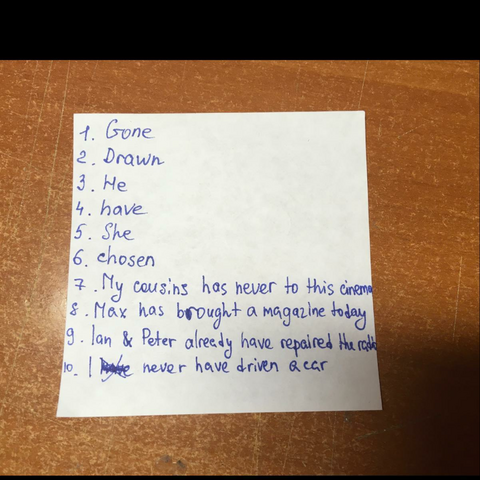 1. Gone
2. Drawn
3. He
4. have
5. She
6. chosen
7. My cousins has never to this cinema
8. Max has brought a magazine today
9. Ian & Peter already have repaired the radio
10. I never have driven a car